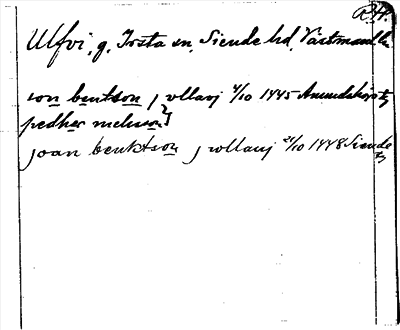 R.A.
Ulfvi, g. Irsta sn, Siende hd, Västmanl.
ion bentson j vllavj 4/10 1445 Anundshögstg
pedher melwson }
joan benktson j wllavj 21/10 1448 Siende tg